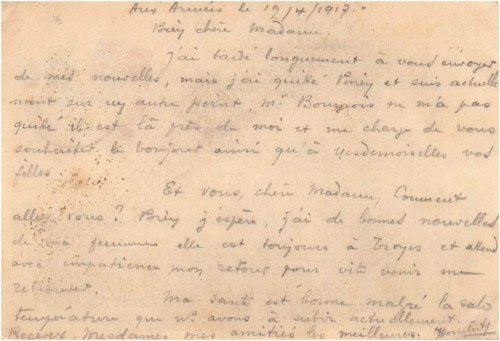 Aux Armées le 19/4/1917.
Bien chère Madame,
j'ai tardé longuement à vous envoyer
de mes nouvelles, mais j'ai quitté Piney et suis actuelle
ment sur un autre point, Mr Bourgeois ne m'a pas
quitté il est là près de moi et me charge de vous
souhaiter le bonjour ainsi qu'à Mesdemoiselles vos
filles.
Et vous, chère Madame, Comment
allez vous ? Bien j'espère, j'ai de bonnes nouvelles
de ma femme elle est toujours à Troyes et attend
avec impatience mon retour pour vite venir me
retrouver.
Ma santé est bonne malgré la sale
température que ns avons à subir actuellement.
Recevez, Mesdames mes amitiés les meilleures.